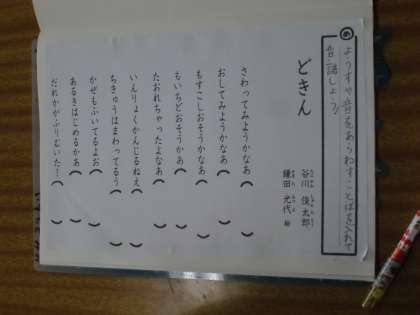 め ようすや音をあらわすことばを入れて
音読しよう!
どきん
谷川 俊太郎
鎌田 光代 絵
さわってみようかなあ( )
おしてみようかなあ( )
もすこしおそうかなあ( )
もいちどおそうかあ( )
たおれちゃったよなあ( )
いんりょくかんじるねえ( )
ちきゅうはまわってるう( )
かぜもふいてるよお( )
あるきはじめるかあ( )
だれかがふりむいた!( )